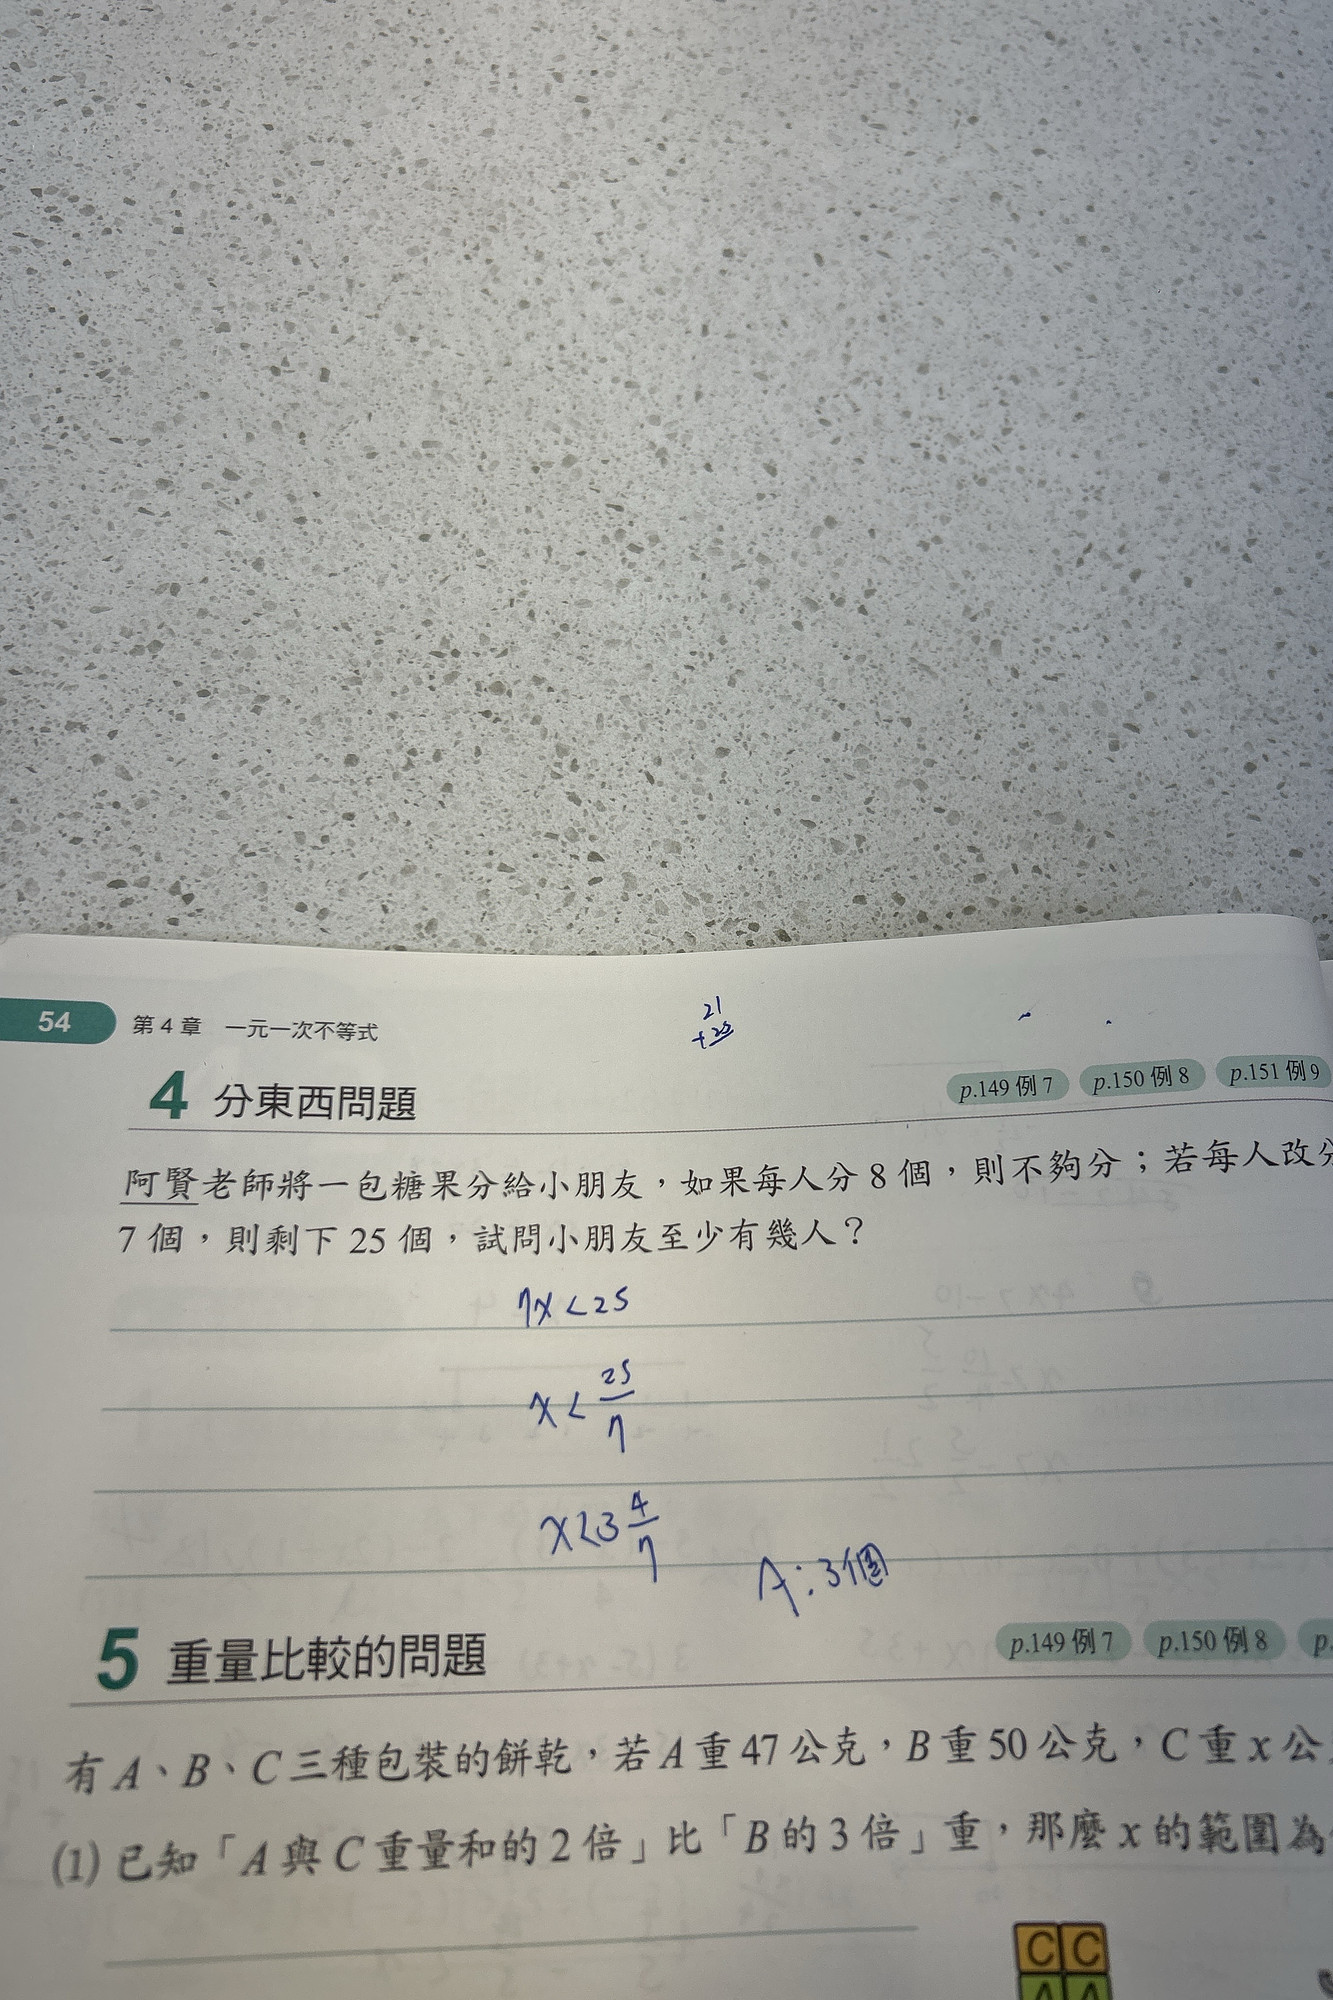 54 第4章 一元一次不等式
21
+25
4 分東西問題 p.149例7 p.150例8 p.151例9
阿賢老師將一包糖果分給小朋友，如果每人分8個，則不夠分；若每人改分
7個，則剩下25個，試問小朋友至少有幾人？
7x<25
x<25/7
x<3 4/7
A:3個
5 重量比較的問題 p.149例7 p.150例8 p.
有A、B、C三種包裝的餅乾，若A重47公克，B重50公克，C重x公
(1)已知「A與C重量和的2倍」比「B的3倍」重，那麼x的範圍為
C C
A A